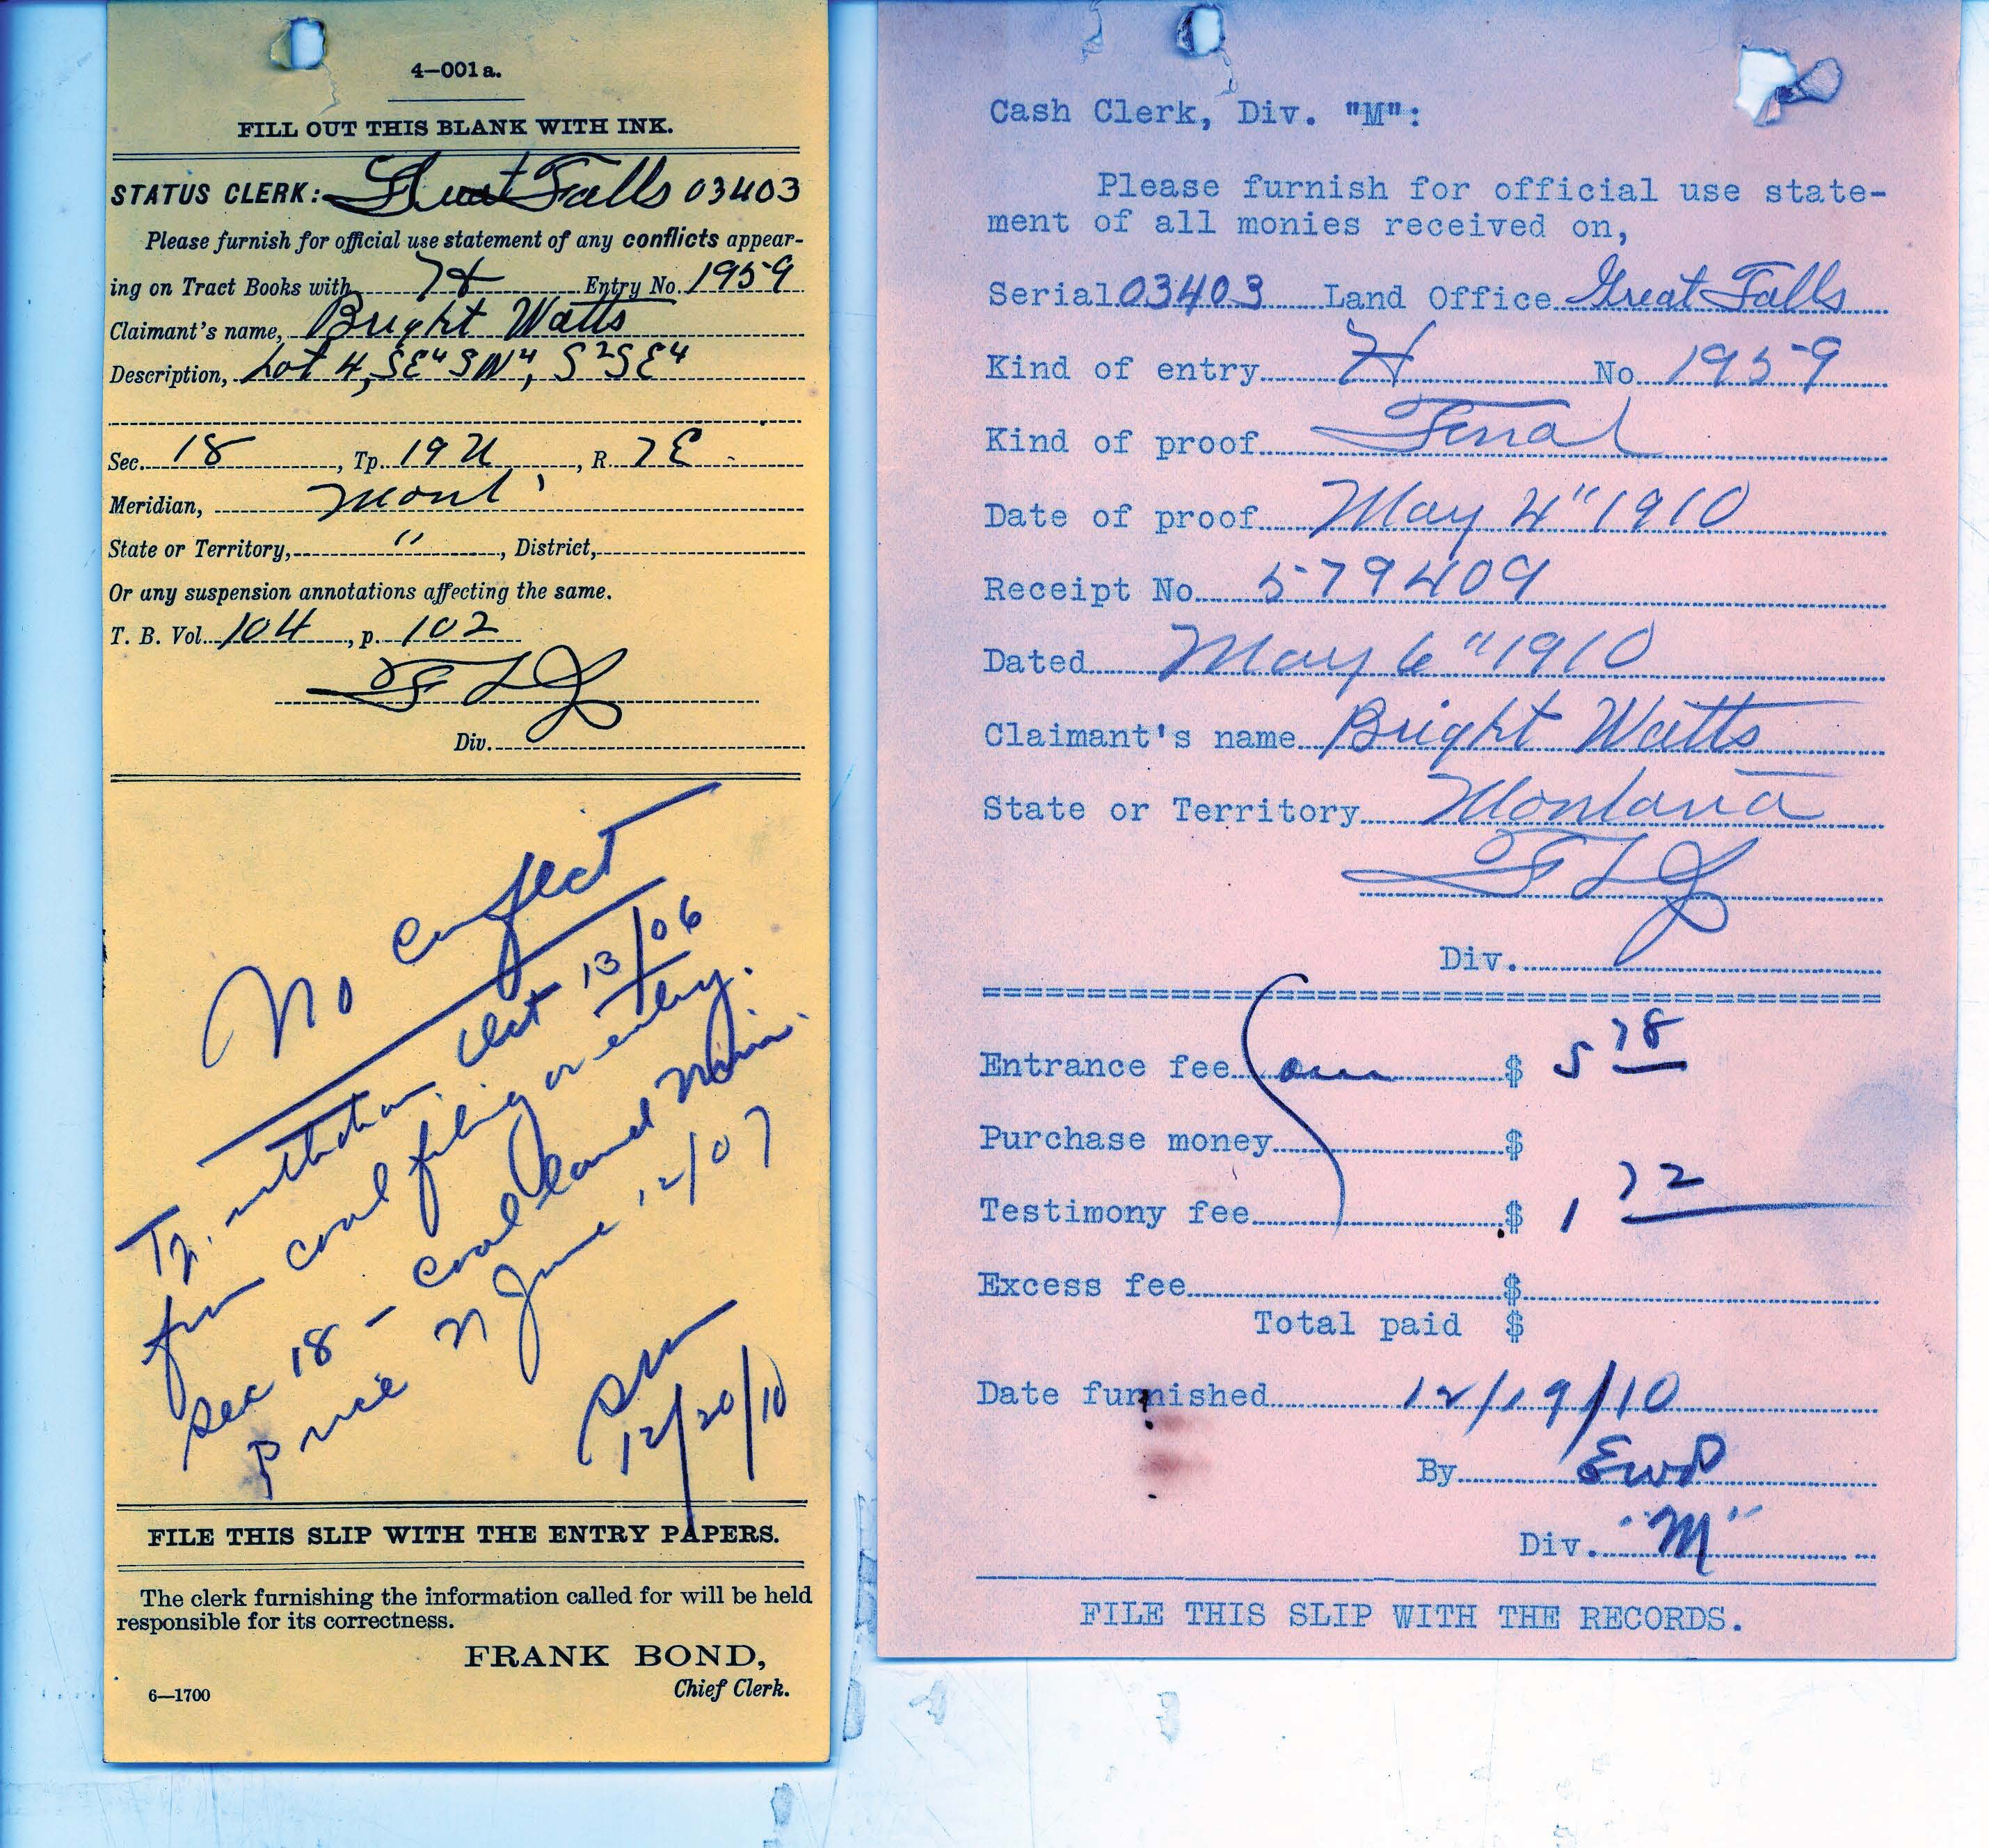 4—001a.
FILL OUT THIS BLANK WITH INK.
STATUS CLERK: Great Falls 03403
Please furnish for official use statement of any conflicts appear-
ing on Tract Books with H Entry No. 1959
Claimant's name, Bright Watts
Description, Lot 4, SE⁴ SW⁴, S²SE⁴
Sec. 18, Tp. 19 N, R. 7 E.
Meridian, Mont
State or Territory, ", District,
Or any suspension annotations affecting the same.
T. B. Vol. 104, p. 102
F L J
Div.
No conflict
Tp. withdrawn Oct 13/06
from coal filing or entry.
Sec 18 - coal land Min.
price N June 12/07
12/20/10
FILE THIS SLIP WITH THE ENTRY PAPERS.
The clerk furnishing the information called for will be held
responsible for its correctness.
FRANK BOND,
Chief Clerk.
6—1700
Cash Clerk, Div. "M":
Please furnish for official use state-
ment of all monies received on,
Serial 03403 Land Office Great Falls
Kind of entry H No. 1959
Kind of proof Final
Date of proof May 4" 1910
Receipt No. 579409
Dated May 6" 1910
Claimant's name Bright Watts
State or Territory Montana
F L J
Div.
Entrance fee Com $ 5 78
Purchase money $
Testimony fee $ 1 72
Excess fee $
Total paid $
Date furnished 12/19/10
By EWD
Div. "M"
FILE THIS SLIP WITH THE RECORDS.